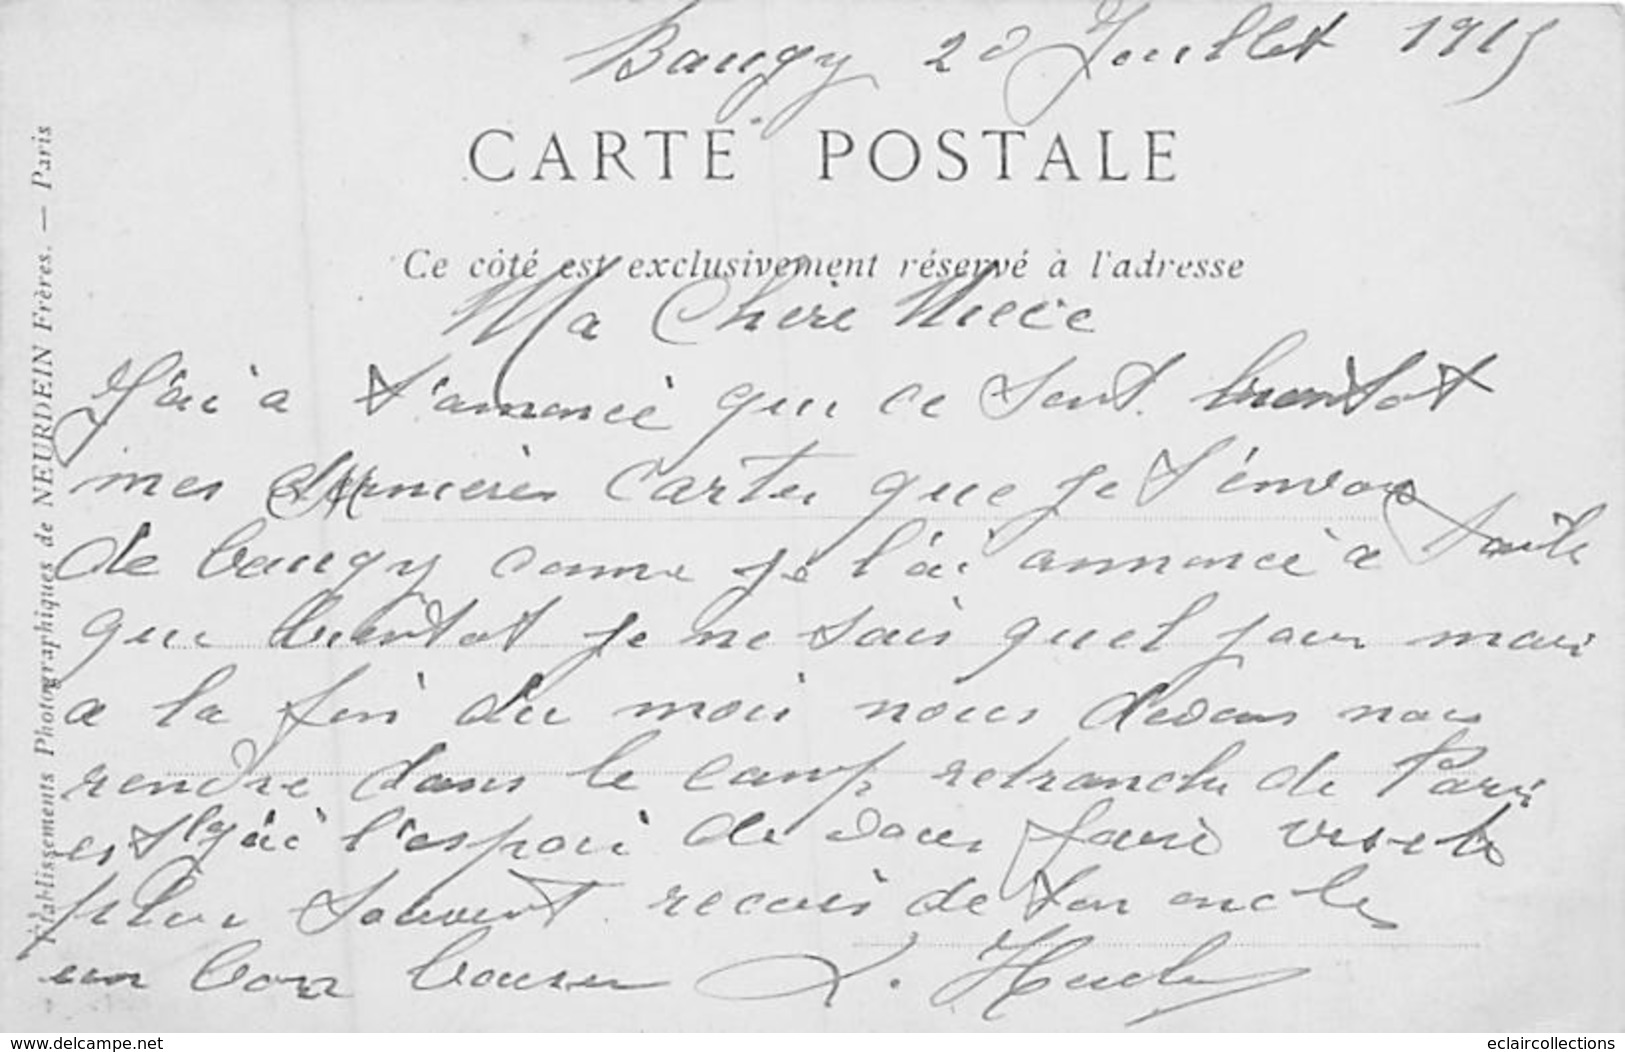 Baugy 20 Juillet 1915
CARTE POSTALE
Ce côté est exclusivement réservé à l'adresse
Ma Chère Niece
J'ai a t'annoncé que ce sont bientot
mes dernieres cartes que je t'envoi
de baugy comme je l'ai annoncé a
que bientot je ne sais quel jour mais
a la fin du mois nous devons nous
rendre dans le camp retranché de Paris
et j'ai l'espoir de vous faire visite
plus souvent recois de ton oncle
un bon baiser
Établissements Photographiques de NEURDEIN Frères. — Paris
www.delcampe.net
eclaircollections